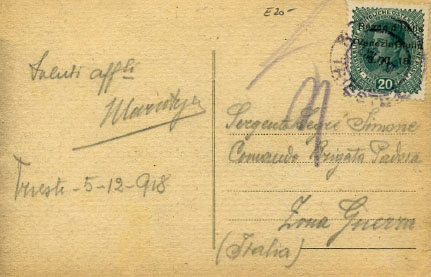 E20-
Saluti affli
Trieste - 5-12-918
Regno d'Italia
Venezia Giulia
3. XI. 18.
20
Sergente Simone
Comando Brigata Padova
Zona Guerra
(Italia)